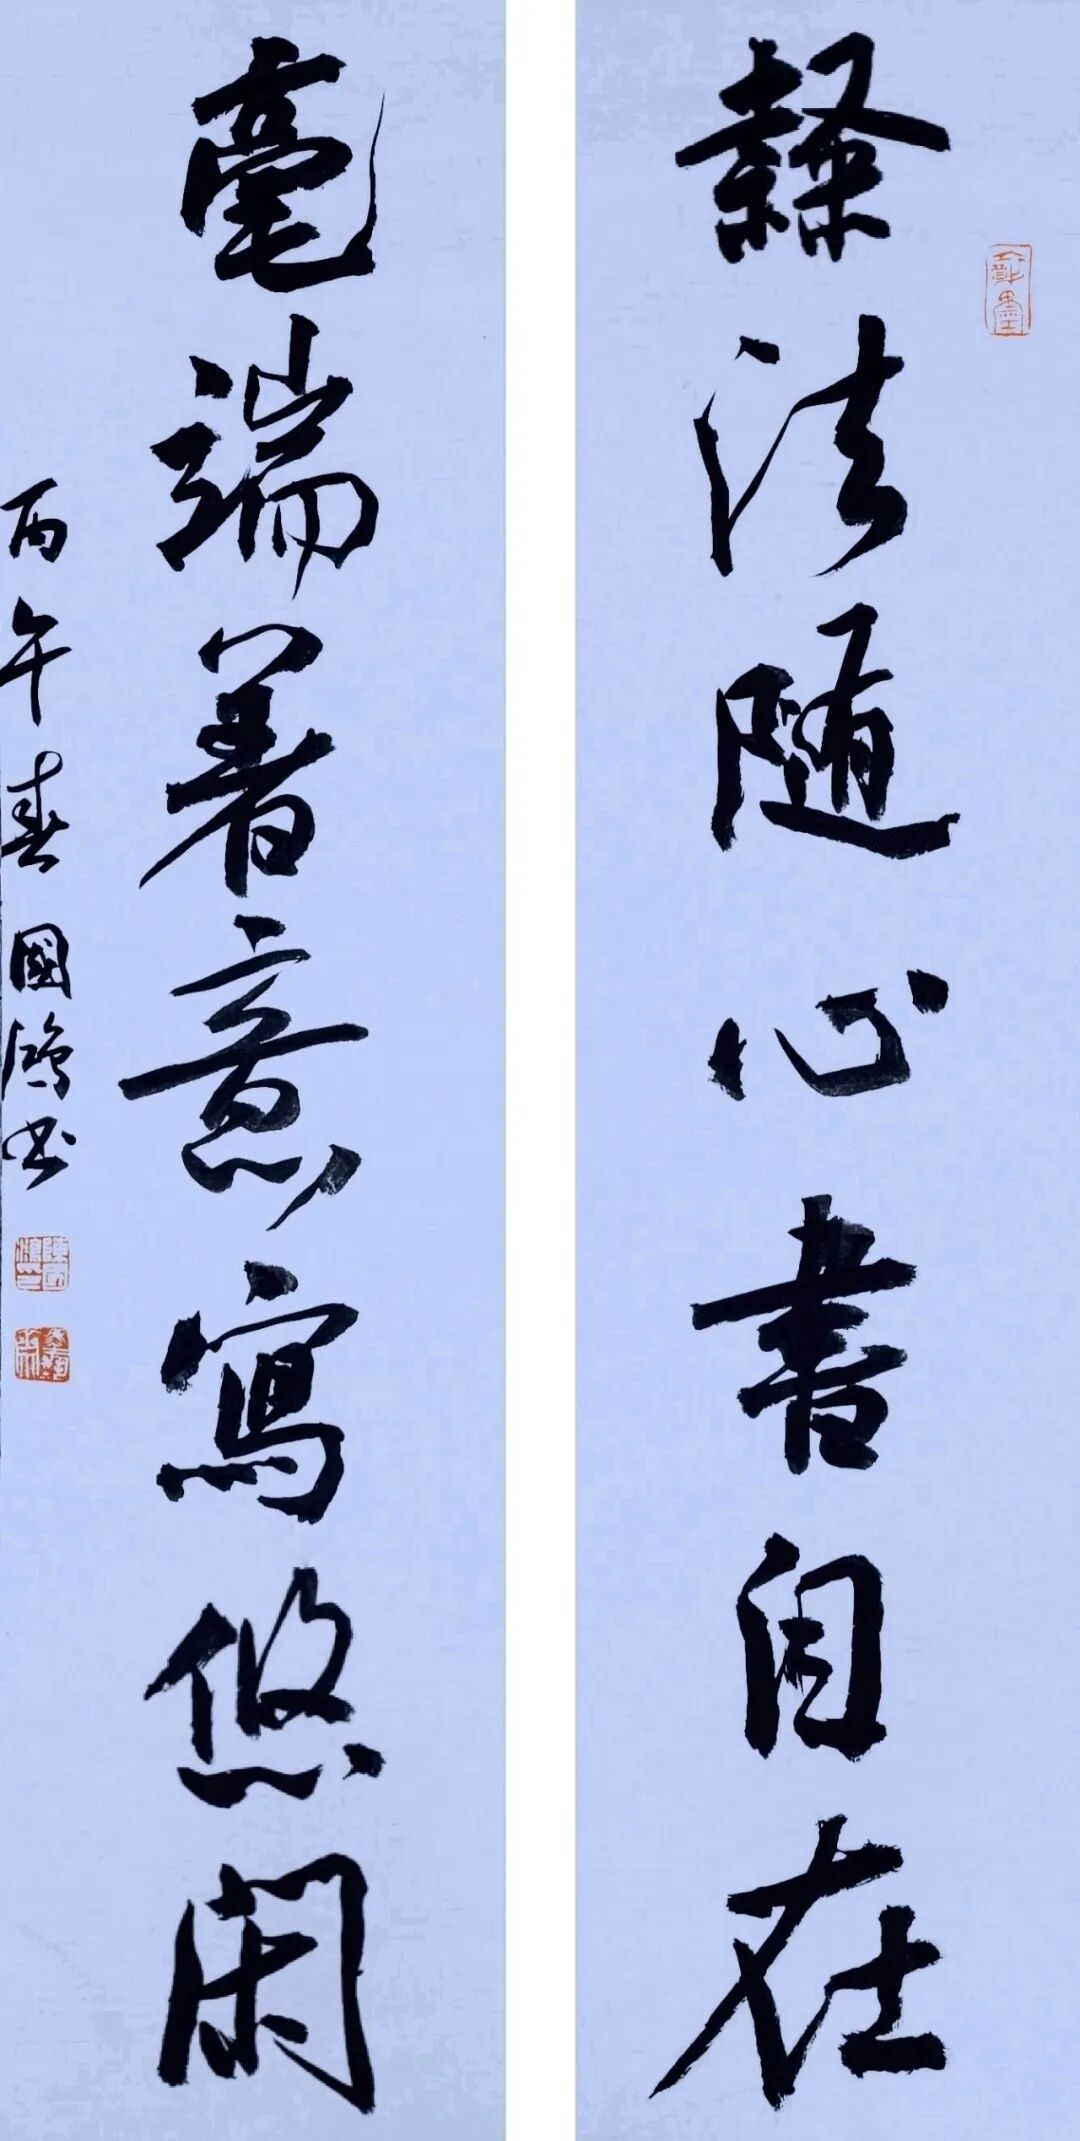 隸法随心書自在
毫端着意寫悠閑
丙午春國鴻书